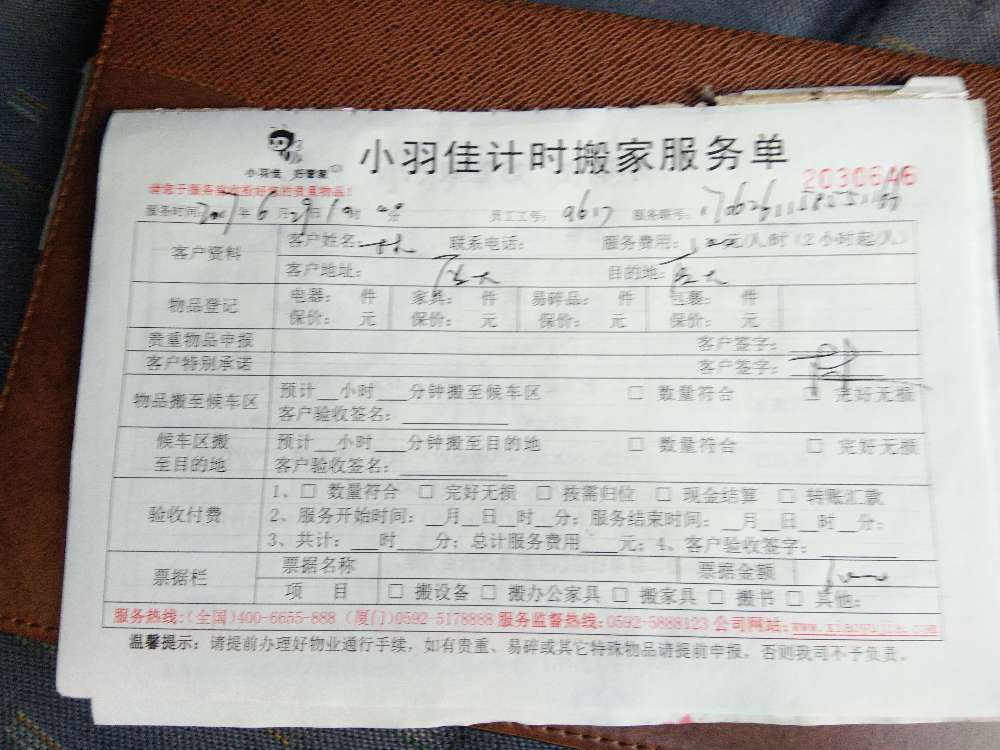 小羽佳计时搬家服务单
小羽佳 好管家
2030646
请您于服务前
服务时间: 2017年6月29日 时 分 员工工号: 9617 服务账号:
客户资料 客户姓名: 林 联系电话: 服务费用: 元/人/时(2小时起/人)
客户地址: 厦大 目的地: 厦大
物品登记 电器: 件 家具: 件 易碎品: 件 包裹: 件
保价: 元 保价: 元 保价: 元 保价: 元
贵重物品申报 客户签字:
客户特别承诺 客户签字:
物品搬至候车区 预计__小时___分钟搬至候车区 □ 数量符合 □ 完好无损
客户验收签名:
候车区搬至目的地 预计__小时___分钟搬至目的地 □ 数量符合 □ 完好无损
客户验收签名:
验收付费 1、□ 数量符合 □ 完好无损 □ 按需归位 □ 现金结算 □ 转账汇款
2、服务开始时间:__月__日__时__分;服务结束时间:__月__日__时__分;
3、共计:___时____分;总计服务费用____元;4、客户验收签字:
票据栏 票据名称 票据金额
项 目 □ 搬设备 □ 搬办公家具 □ 搬家具 □ 搬书 □ 其他:
服务热线:(全国)400-6655-888 (厦门)0592-5178888 服务监督热线:0592-5888123 公司网站:www.xiaoyujia.com
温馨提示:请提前办理好物业通行手续,如有贵重、易碎或其它特殊物品请提前申报,否则我司不予负责。